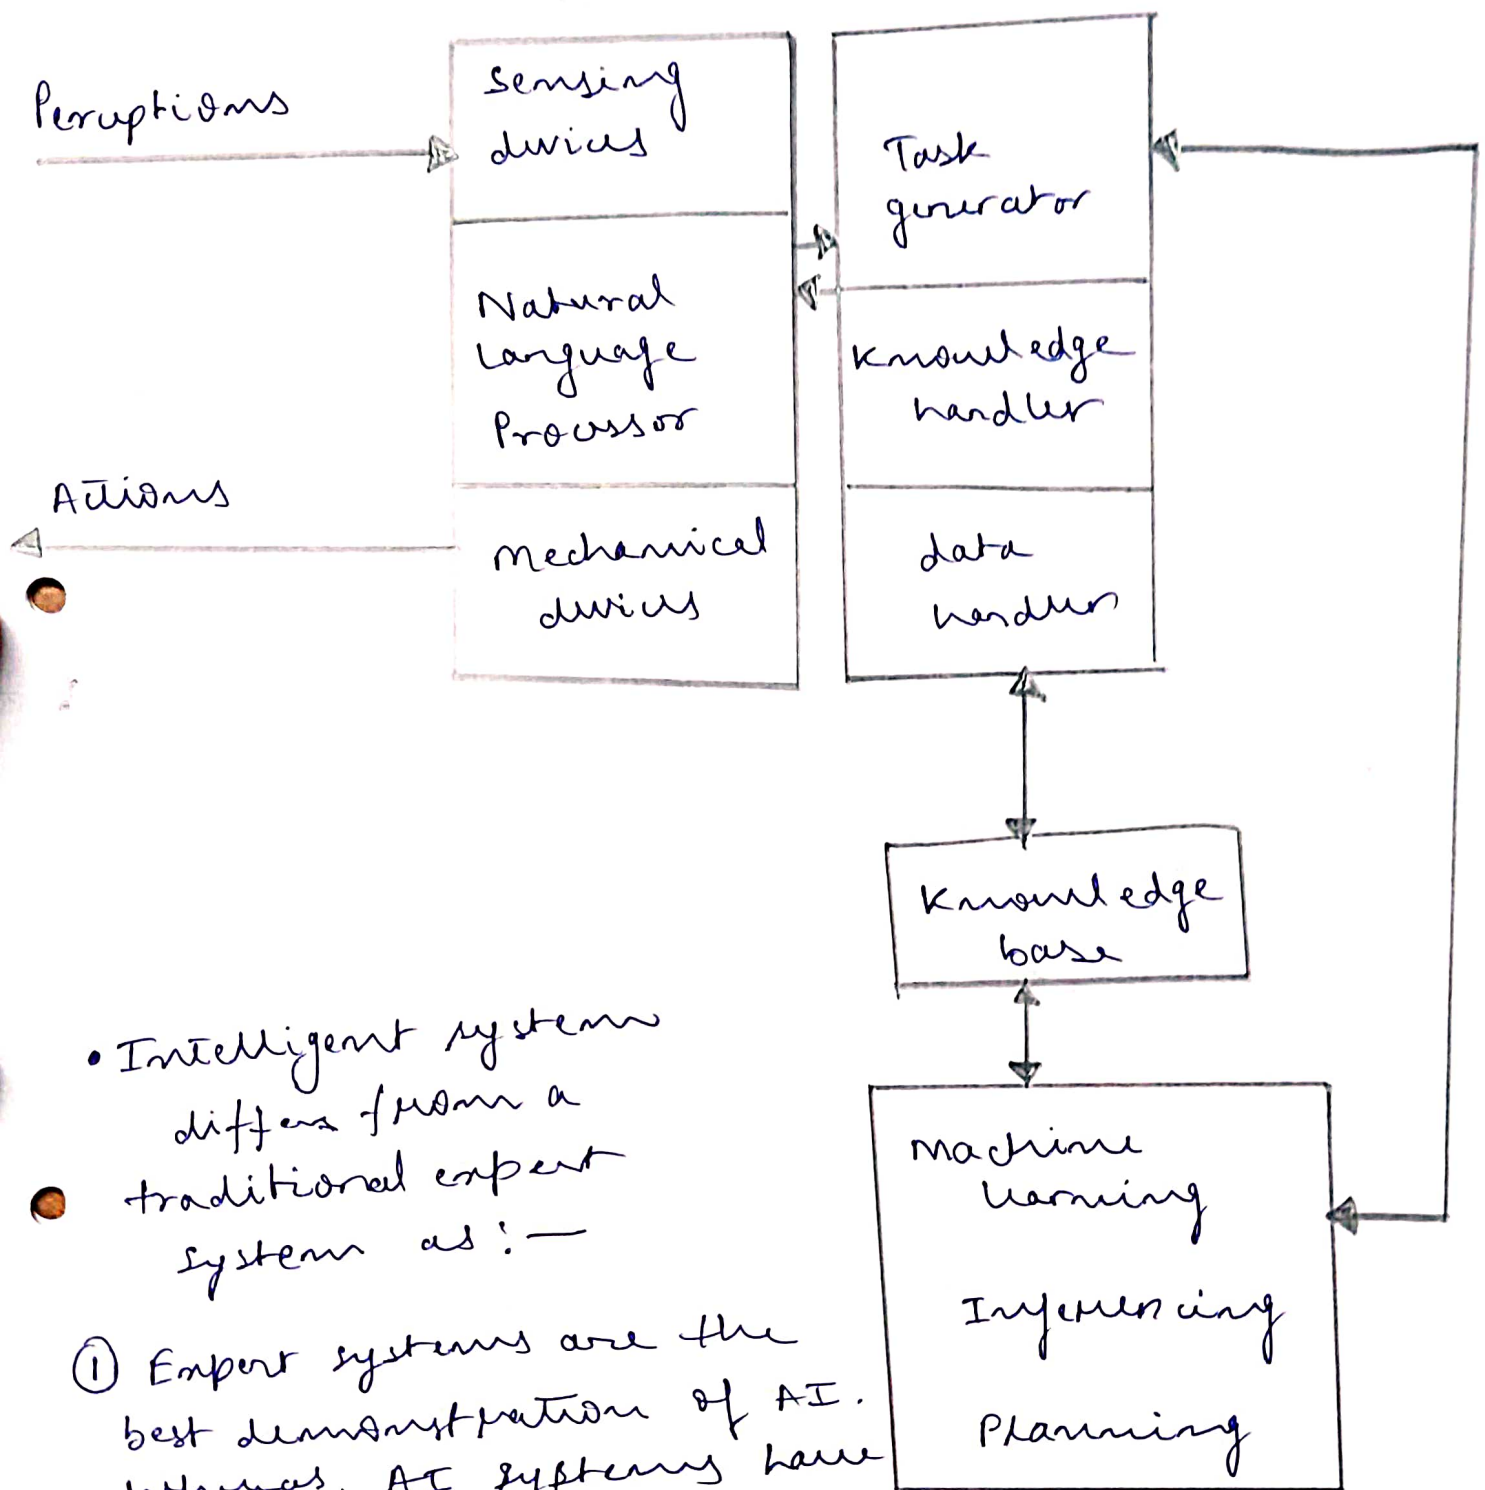 Perceptions
Sensing
devices
Natural
Language
Processor
Actions
Mechanical
devices
Task
generator
Knowledge
handler
data
handler
Knowledge
base
Machine
learning
Inferencing
Planning
• Intelligent system
differs from a
traditional expert
system as:—
① Expert systems are the
best demonstration of AI.
whereas, AI systems have